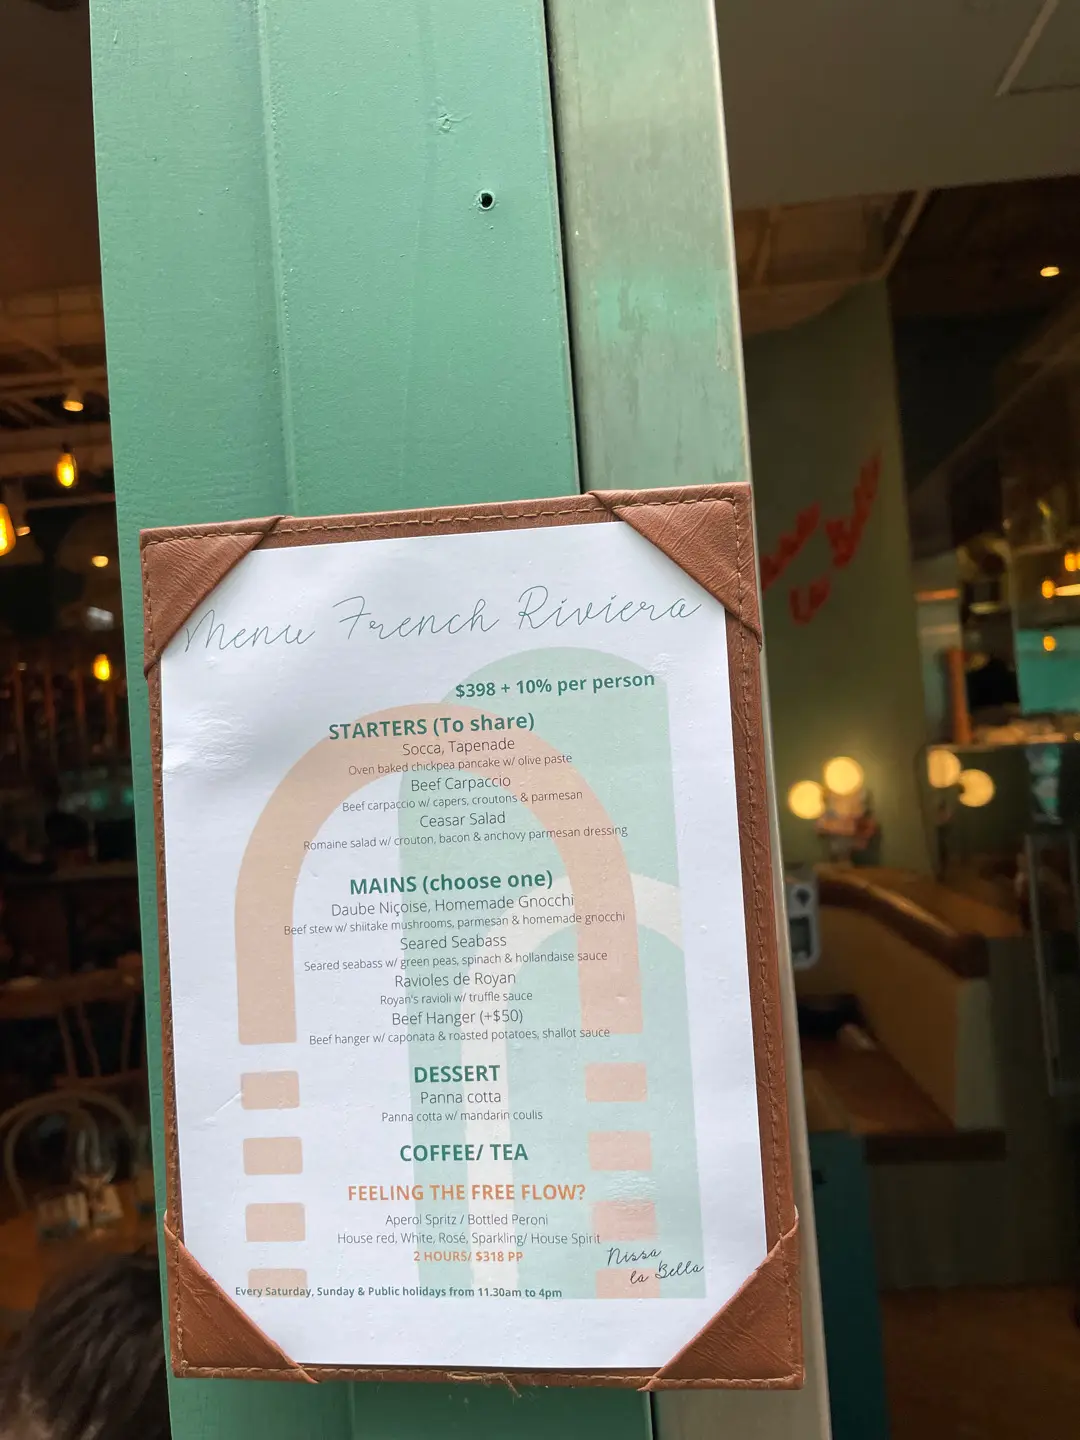 Menu French Riviera
$398 + 10% per person
STARTERS (To share)
Socca, Tapenade
Oven baked chickpea pancake w/ olive paste
Beef Carpaccio
Beef carpaccio w/ capers, croutons & parmesan
Ceasar Salad
Romaine salad w/ crouton, bacon & anchovy parmesan dressing
MAINS (choose one)
Daube Niçoise, Homemade Gnocchi
Beef stew w/ shiitake mushrooms, parmesan & homemade gnocchi
Seared Seabass
Seared seabass w/ green peas, spinach & hollandaise sauce
Ravioles de Royan
Royan's ravioli w/ truffle sauce
Beef Hanger (+$50)
Beef hanger w/ caponata & roasted potatoes, shallot sauce
DESSERT
Panna cotta
Panna cotta w/ mandarin coulis
COFFEE/ TEA
FEELING THE FREE FLOW?
Aperol Spritz / Bottled Peroni
House red, White, Rosé, Sparkling/ House Spirit
2 HOURS/ $318 PP
Nissa
la Bella
Every Saturday, Sunday & Public holidays from 11.30am to 4pm